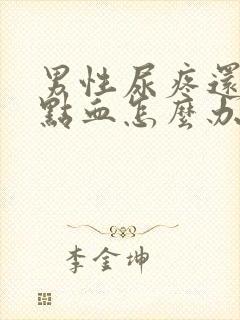 男性尿疼還
點血怎麼办
李金坤